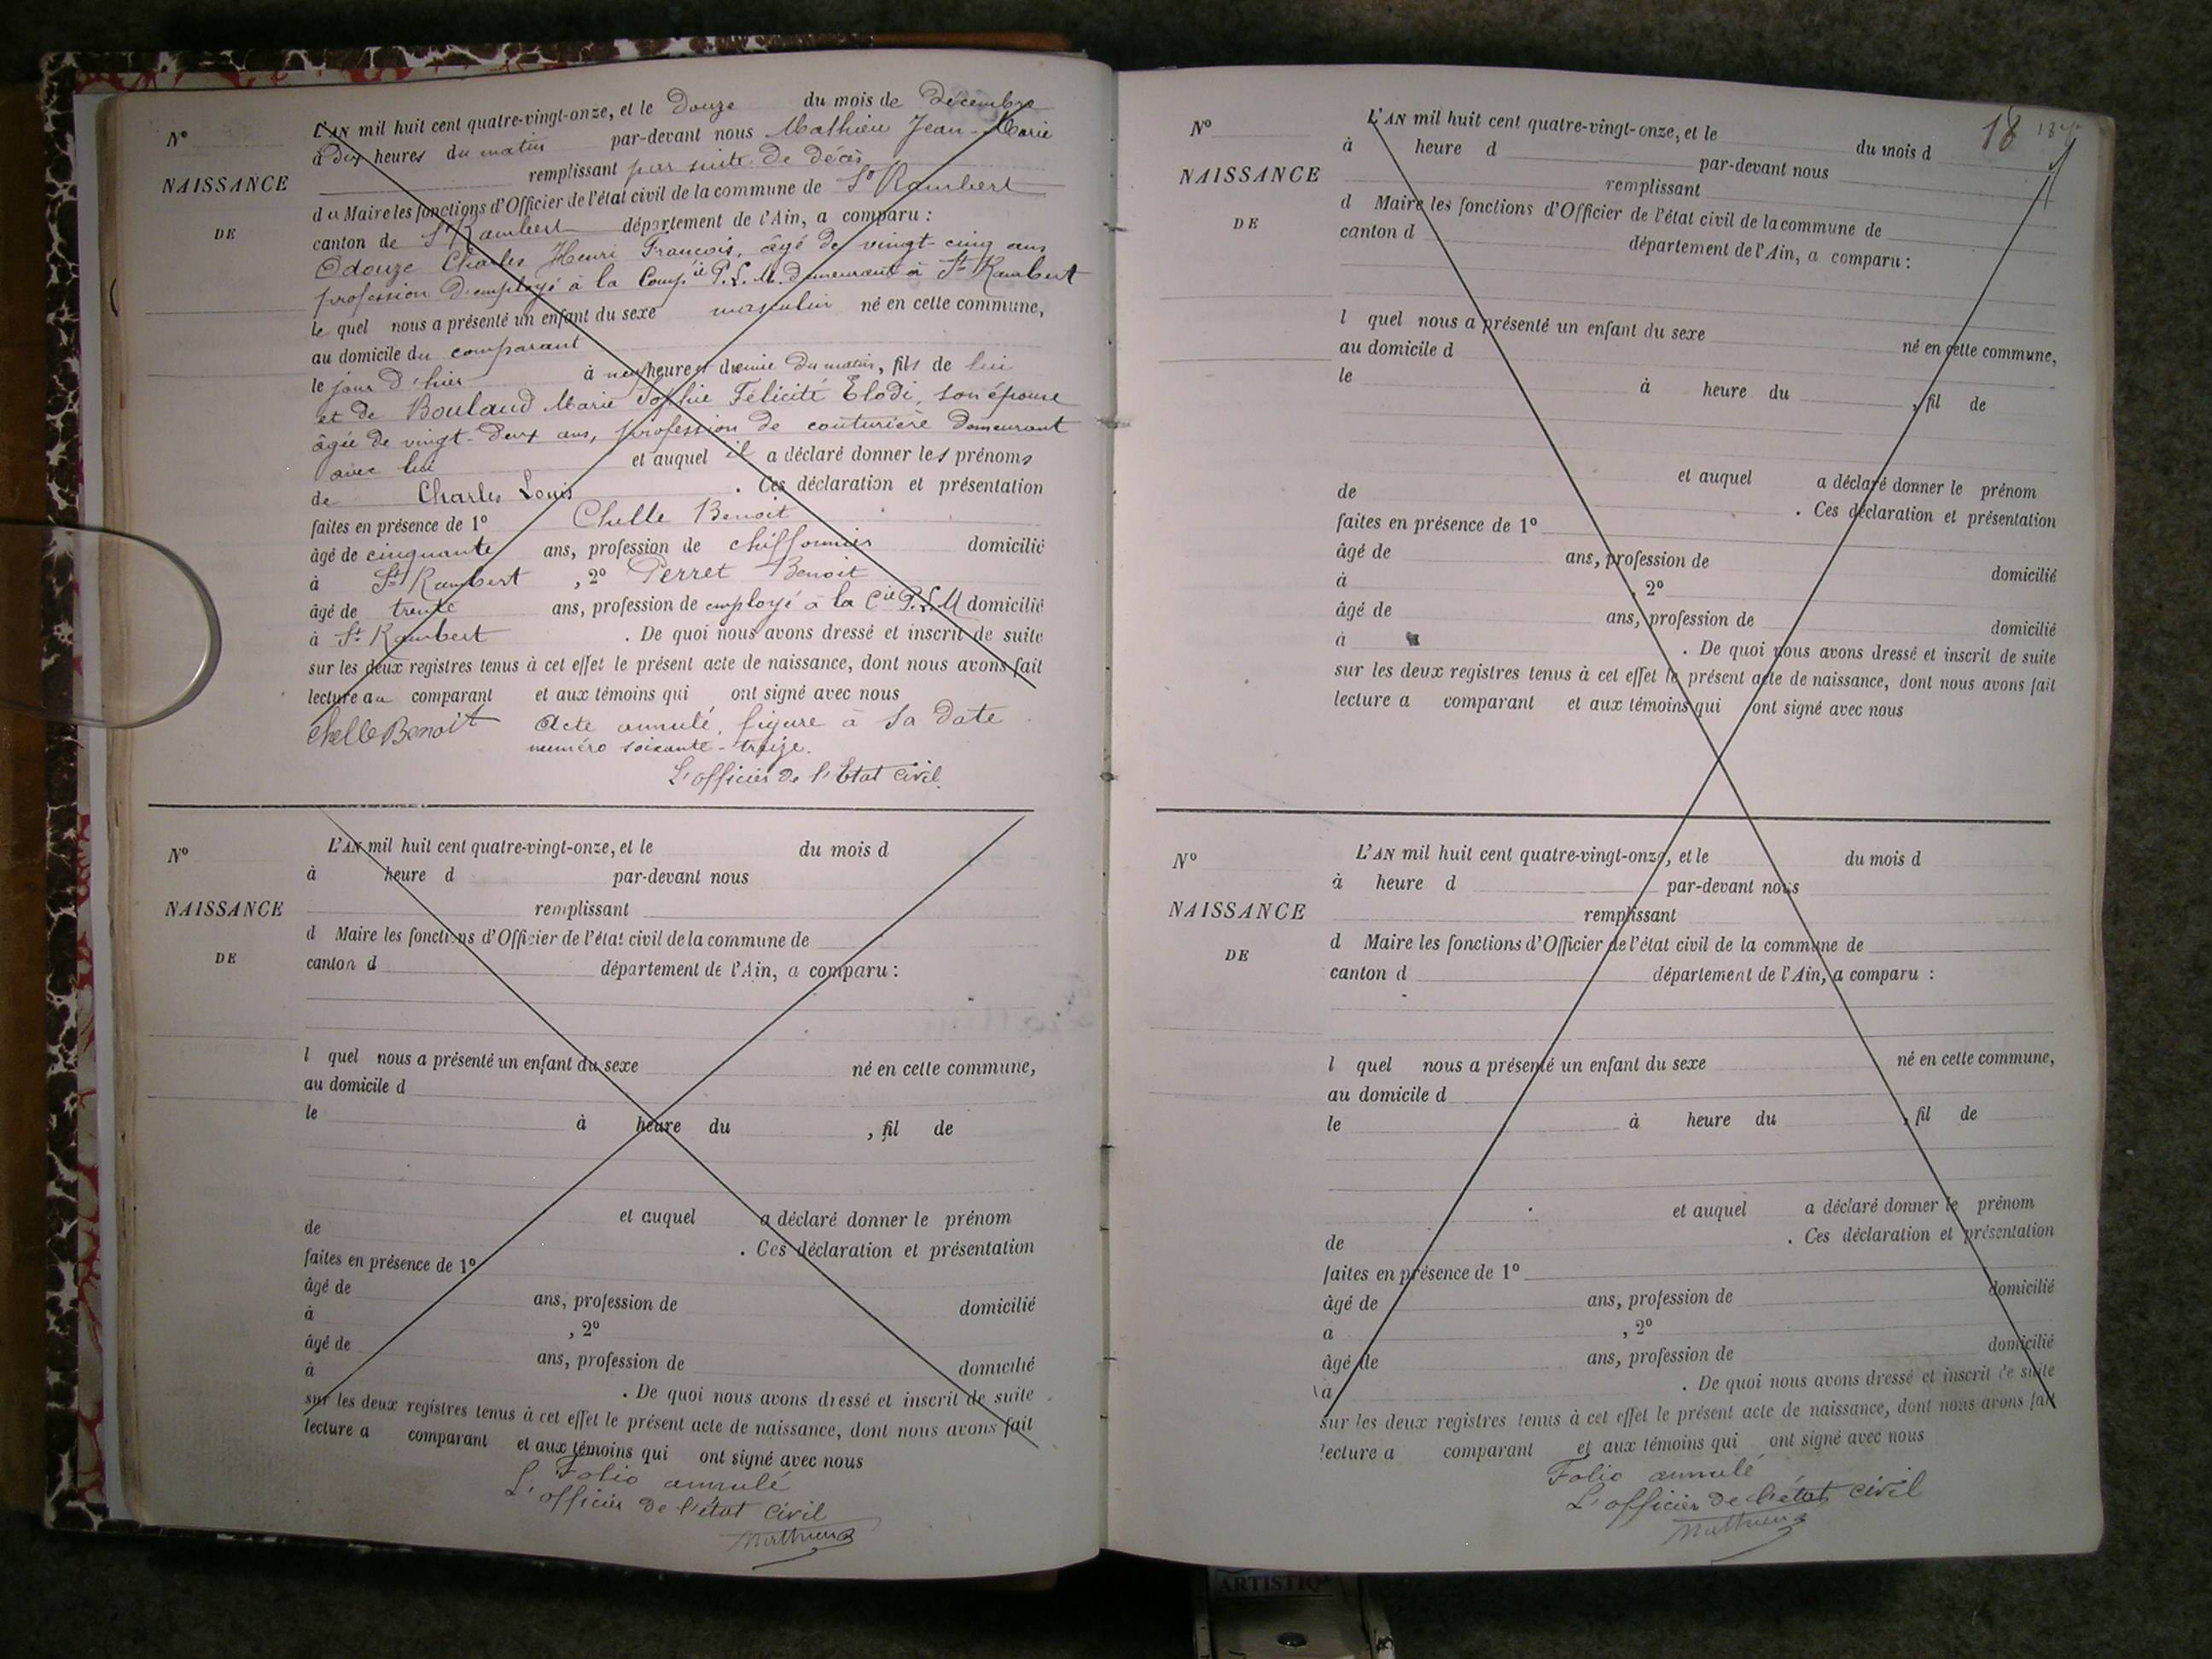 Nº
NAISSANCE
DE
L'AN mil huit cent quatre-vingt-onze, et le Douze du mois de Décembre
à dix heures du matin par-devant nous Mathieu Jean-Marie
remplissant par suite de décès
du Maire les fonctions d'Officier de l'état civil de la commune de St Rambert
canton de St Rambert département de l'Ain, a comparu :
Odouze Charles Henri François, âgé de vingt-cinq ans
profession d'employé à la Compie P.L.M. demeurant à St Rambert
le quel nous a présenté un enfant du sexe masculin né en cette commune,
au domicile du comparant
le jour d'hier à neuf heures et demie du matin, fils de lui
et de Boulaud Marie Sophie Félicité Elodi, son épouse
âgée de vingt-deux ans, profession de couturière demeurant
avec lui et auquel il a déclaré donner les prénoms
de Charles Louis . Ces déclaration et présentation
faites en présence de 1º Chelle Benoit
âgé de cinquante ans, profession de chiffonnier domicilié
à St Rambert , 2º Perret Benoit
âgé de trente ans, profession de employé à la Cie P.L.M domicilié
à St Rambert . De quoi nous avons dressé et inscrit de suite
sur les deux registres tenus à cet effet le présent acte de naissance, dont nous avons fait
lecture au comparant et aux témoins qui ont signé avec nous
Chelle Benoit Acte annulé, figure à sa date
numéro soixante-treize.
L'officier de l'Etat civil.
Nº
NAISSANCE
DE
L'AN mil huit cent quatre-vingt-onze, et le du mois d
à heure d par-devant nous
remplissant
d Maire les fonctions d'Officier de l'état civil de la commune de
canton d département de l'Ain, a comparu :
l quel nous a présenté un enfant du sexe né en cette commune,
au domicile d
le à heure du , fil de
et auquel a déclaré donner le prénom
de . Ces déclaration et présentation
faites en présence de 1º
âgé de ans, profession de domicilié
à , 2º
âgé de ans, profession de domicilié
à . De quoi nous avons dressé et inscrit de suite
sur les deux registres tenus à cet effet le présent acte de naissance, dont nous avons fait
lecture a comparant et aux témoins qui ont signé avec nous
Folio annulé
L'officier de l'état civil
Mathieu
18
Nº
NAISSANCE
DE
L'AN mil huit cent quatre-vingt-onze, et le du mois d
à heure d par-devant nous
remplissant
d Maire les fonctions d'Officier de l'état civil de la commune de
canton d département de l'Ain, a comparu :
l quel nous a présenté un enfant du sexe né en cette commune,
au domicile d
le à heure du , fil de
et auquel a déclaré donner le prénom
de . Ces déclaration et présentation
faites en présence de 1º
âgé de ans, profession de domicilié
à , 2º
âgé de ans, profession de domicilié
à . De quoi nous avons dressé et inscrit de suite
sur les deux registres tenus à cet effet le présent acte de naissance, dont nous avons fait
lecture a comparant et aux témoins qui ont signé avec nous
Nº
NAISSANCE
DE
L'AN mil huit cent quatre-vingt-onze, et le du mois d
à heure d par-devant nous
remplissant
d Maire les fonctions d'Officier de l'état civil de la commune de
canton d département de l'Ain, a comparu :
l quel nous a présenté un enfant du sexe né en cette commune,
au domicile d
le à heure du , fil de
et auquel a déclaré donner le prénom
de . Ces déclaration et présentation
faites en présence de 1º
âgé de ans, profession de domicilié
a , 2º
âgé de ans, profession de domicilié
à . De quoi nous avons dressé et inscrit de suite
sur les deux registres tenus à cet effet le présent acte de naissance, dont nous avons fait
lecture a comparant et aux témoins qui ont signé avec nous
Folio annulé
L'officier de l'état civil
Mathieu
ARTISTIQ